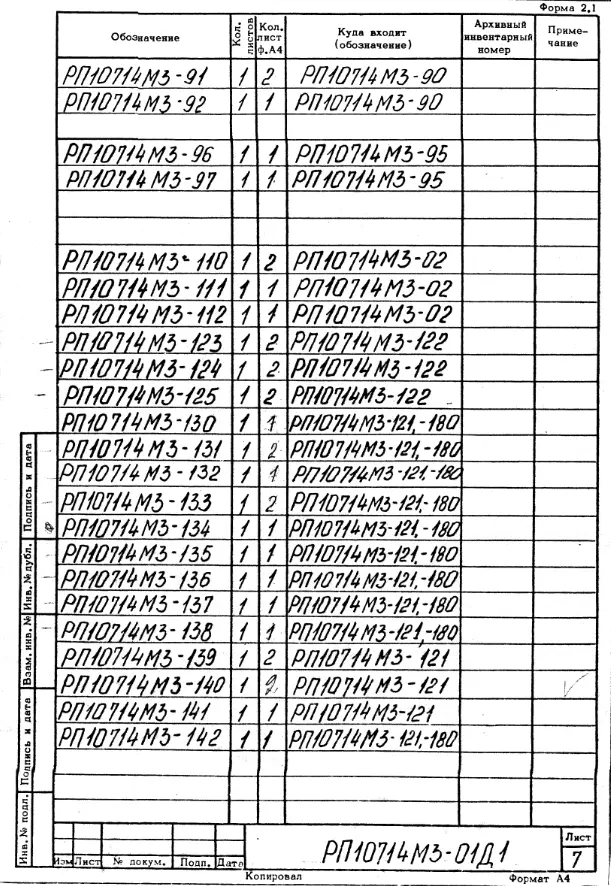 Форма 2.1
Обозначение Кол. листов Кол. лист ф.А4 Куда входит (обозначение) Архивный инвентарный номер Приме- чание
РП10714М3-91 1 2 РП10714М3-90
РП10714М3-92 1 1 РП10714М3-90
РП10714М3-96 1 1 РП10714М3-95
РП10714М3-97 1 1 РП10714М3-95
РП10714М3-110 1 2 РП10714М3-02
РП10714М3-111 1 1 РП10714М3-02
РП10714М3-112 1 1 РП10714М3-02
РП10714М3-123 1 2 РП10714М3-122
РП10714М3-124 1 2 РП10714М3-122
РП10714М3-125 1 2 РП10714М3-122
РП10714М3-130 1 1 РП10714М3-121,-180
РП10714М3-131 1 2 РП10714М3-121,-180
РП10714М3-132 1 1 РП10714М3-121,-180
РП10714М3-133 1 2 РП10714М3-121,-180
РП10714М3-134 1 1 РП10714М3-121,-180
РП10714М3-135 1 1 РП10714М3-121,-180
РП10714М3-136 1 1 РП10714М3-121,-180
РП10714М3-137 1 1 РП10714М3-121,-180
РП10714М3-138 1 1 РП10714М3-121,-180
РП10714М3-139 1 2 РП10714М3-121
РП10714М3-140 1 2 РП10714М3-121
РП10714М3-141 1 1 РП10714М3-121
РП10714М3-142 1 1 РП10714М3-121,-180
Инв. № подл. Подпись и дата Взам. инв. № Инв. № дубл. Подпись и дата
Изм Лист № докум. Подп. Дата
РП10714М3-01Д1
Лист
7
Копировал Формат А4